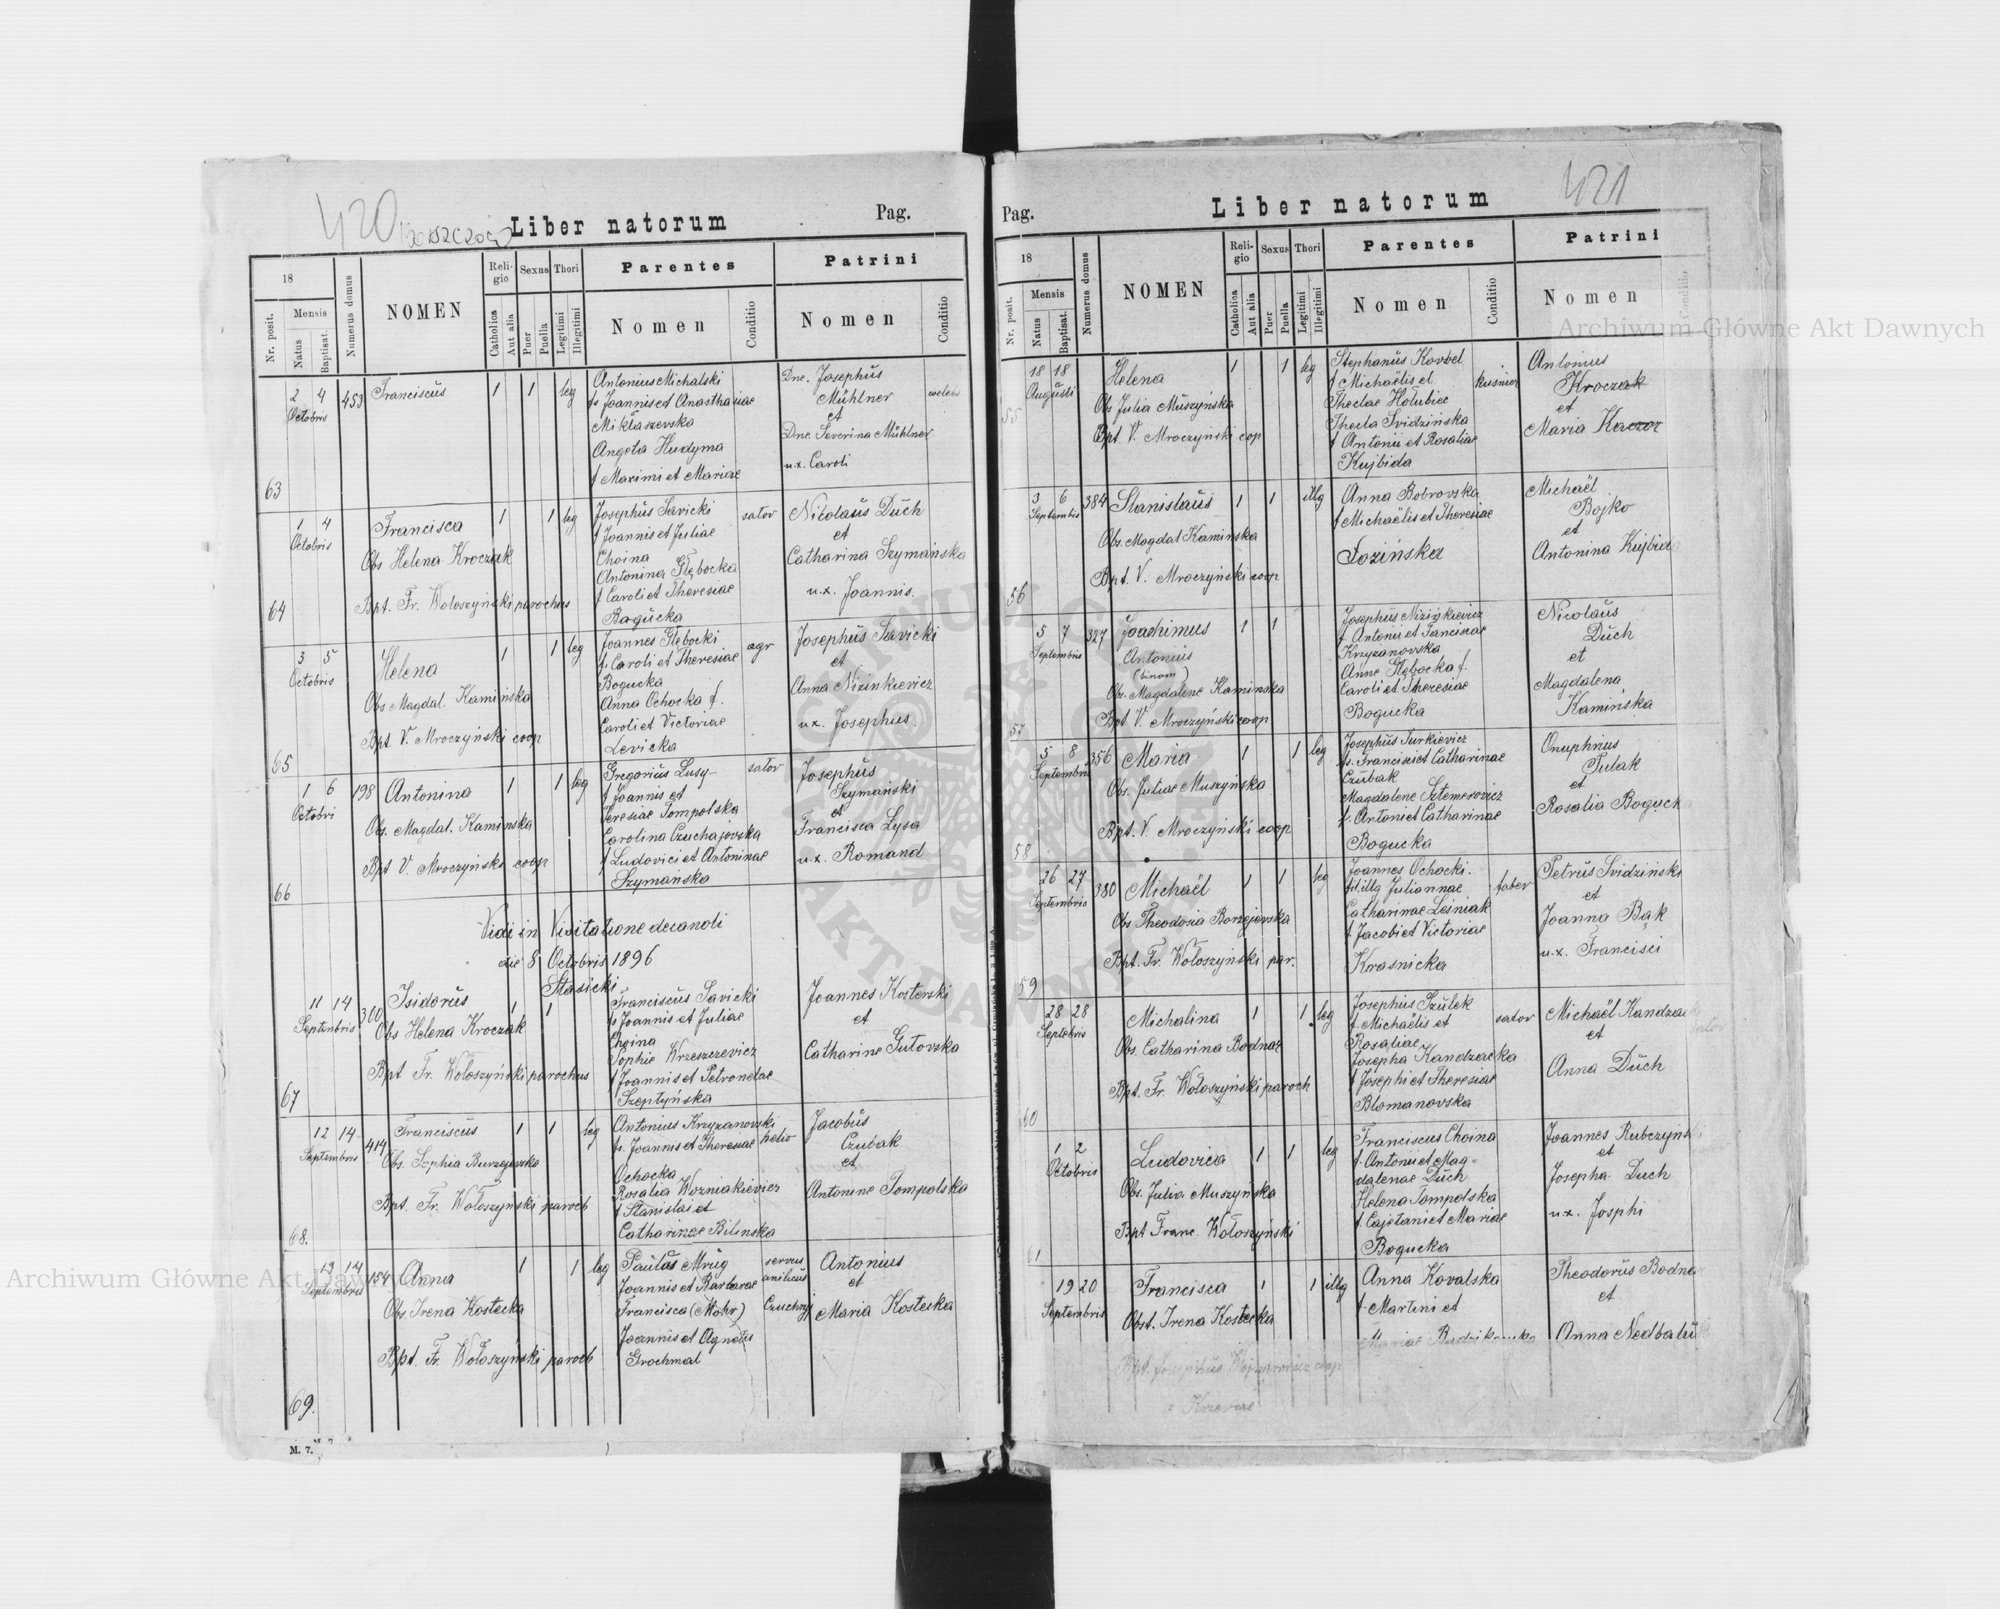 420
Liber natorum
Pag.
18
Nr. posit.
Mensis
Natus
Baptisat.
Numerus domus
NOMEN
Religio
Catholica
Aut alia
Sexus
Puer
Puella
Thori
Legitimi
Illegitimi
Parentes
Nomen
Conditio
Patrini
Nomen
Conditio
63
2 4
Octobris
453
Franciscus
1 1 leg
Antonius Michalski
fs Joannis et Anasthasiae
Miklaszevska
Angela Hudyma
f Maximi et Mariae
Dnc. Josephus
Mühlner
et
Dnc. Severina Mühlner
ux. Caroli
64
1 4
Octobris
Francisca
Obs Helena Kroczak
Bpt. Fr. Wołoszyński parochus
1 1 leg
Josephus Savicki
f Joannis et Juliae
Choina
Antonina Głębocka
f Caroli et Theresiae
Bogucka
sator
Nicolaus Duch
et
Catharina Szymańska
ux. Joannis.
65
3 5
Octobris
Helena
Obs Magdal. Kamińska
Bpt V. Mroczyński coop
1 1 leg
Joannes Głębocki
f. Caroli et Theresiae
Bogucka
Anna Ochocka f.
Caroli et Victoriae
Levicka
agr
Josephus Savicki
et
Anna Nizinkievicz
ux. Josephus.
66
1 6
Octobri
198
Antonina
Obs. Magdal. Kaminska
Bpt V. Mroczyński coop
1 1 leg
Gregorius Lusy-
f Joannis et
Teresiae Tompolska
Carolina Czuchajovska
f Ludovici et Antoninae
Szymańska
sator
Josephus
Szymański
et
Francisca Lysa
ux. Romand
Vidi in Visitatione decanali
die 8 Octobris 1896
Stasicki
67
11 14
Septembris
300
Isidorus
Obs Helena Kroczak
Bpt Fr. Wołoszyński parochus
1 1
Franciscus Savicki
fs Joannis et Juliae
Choina
Sophie Wrzeszczevicz
f Joannis et Petronelae
Szeptyńska
Joannes Kosterski
et
Catharine Gutovska
68.
12 14
Septembris
414
Franciscus
Obs. Sophia Burzejevska
Bpt. Fr. Wołoszyński paroch
1 1 leg
Antonius Krzyzanovski
fs. Joannis et Theresiae
Ochocka
Rosalia Wozniakievicz
f Stanislai et
Catharinae Bilinska
Jacobus
Czubak
et
Antonine Tompolska
69.
13 14
Septembris
154
Anna
Obs Irena Kostecka
Bpt. Fr. Wołoszyński paroch
1 1 leg
Paulus Mrug
Joannis et Barbarae
Francisca (Mohr)
Joannis et Agnetis
Grochmal
servus
Antonius
et
Maria Kostecka
M. 7.
421
Pag.
Liber natorum
18
Nr. posit.
Mensis
Natus
Baptisat.
Numerus domus
NOMEN
Religio
Catholica
Aut alia
Sexus
Puer
Puella
Thori
Legitimi
Illegitimi
Parentes
Nomen
Conditio
Patrini
Nomen
Conditio
55
18 18
Augusti
Helena
Obs Julia Muszyńska
Bpt. V. Mroczyński cop
1 1 leg
Stephanus Kovbel
f Michaëlis et
Theclae Holubiec
Thecla Svidzińska
f Antonii et Rosaliae
Kujbida
kusnier
Antonius
Kroczak
et
Maria Kaczor
56
3 6
Septembris
384
Stanislaus
Obs. Magdal Kaminska
Bpt. V. Mroczyński coop
1 1 illg
Anna Bobrovska
f Michaëlis et Theresiae
Łozińska
Michaël
Bojko
et
Antonina Kujbida
57
5 7
Septembris
327
Joachimus
Antonius
(binom)
Obs. Magdalene Kaminska
Bpt V. Mroczyński coop
1 1
Josephus Nizinkievicz
f. Antonii et Franciscae
Krzyzanovska
Anne Głębocka f.
Caroli et Theresiae
Bogucka
Nicolaus
Duch
et
Magdalena
Kamińska
58
5 8
Septembris
356
Maria
Obs. Juliae Muszyńska
Bpt. V. Mroczyński coop
1 1 leg
Josephus Turkievicz
fs. Francisci et Catharinae
Czubak
Magdalene Sztemerovicz
f. Antoni et Catharinae
Bogucka
Onuphrius
Pulak
et
Rosalia Bogucka
59
26 27
Septembris
380
Michaël
Obs Theodozia Borzejevska
Bpt. Fr. Wołoszyński par.
1 1 leg
Joannes Ochocki.
fil. illg Juliannae
Catharinae Leśniak
f. Jacobi et Victoriae
Krasnicka
faber
Petrus Svidziński
et
Joanna Bąk
ux. Francisci
60
28 28
Septebris
Michalina
Obs. Catharina Bodnar
Bpt. Fr. Wołoszyński paroch
1 1 leg
Josephus Szulek
f. Michaëlis et
Rosaliae
Josepha Kandzacka
f Josephi et Theresiae
Blomanovska
sator
Michaël Kandzacki
et
Anna Duch
sator
61
1 2
Octobris
Ludovica
Obs. Julia Muszyńska
Bpt Franc. Wołoszyński
1 1 leg
Franciscus Choina
f. Antonii et Mag=
dalenae Duch
Helena Tompolska
f. Cajetani et Mariae
Bogucka
Joannes Rubczyński
et
Josepha Duch
ux. Josphi
19 20
Septembris
Francisca
Obst. Irena Kostecka
Bpt. Josephus
1 1 illg
Anna Kovalska
f. Martini et
Mariae
Theodorus Bodnar
et
Anna Nedbaluk
Archiwum Główne Akt Dawnych
Archiwum Główne Akt Dawnych